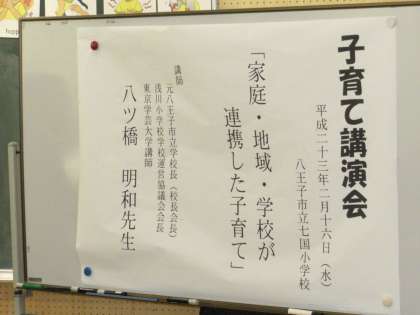 子育て講演会
平成二十三年二月十六日（水）
八王子市立七国小学校
「家庭・地域・学校が
連携した子育て」
講師
元八王子市立学校長（校長会長）
浅川小学校学校運営協議会会長
東京学芸大学講師
八ツ橋 明和先生